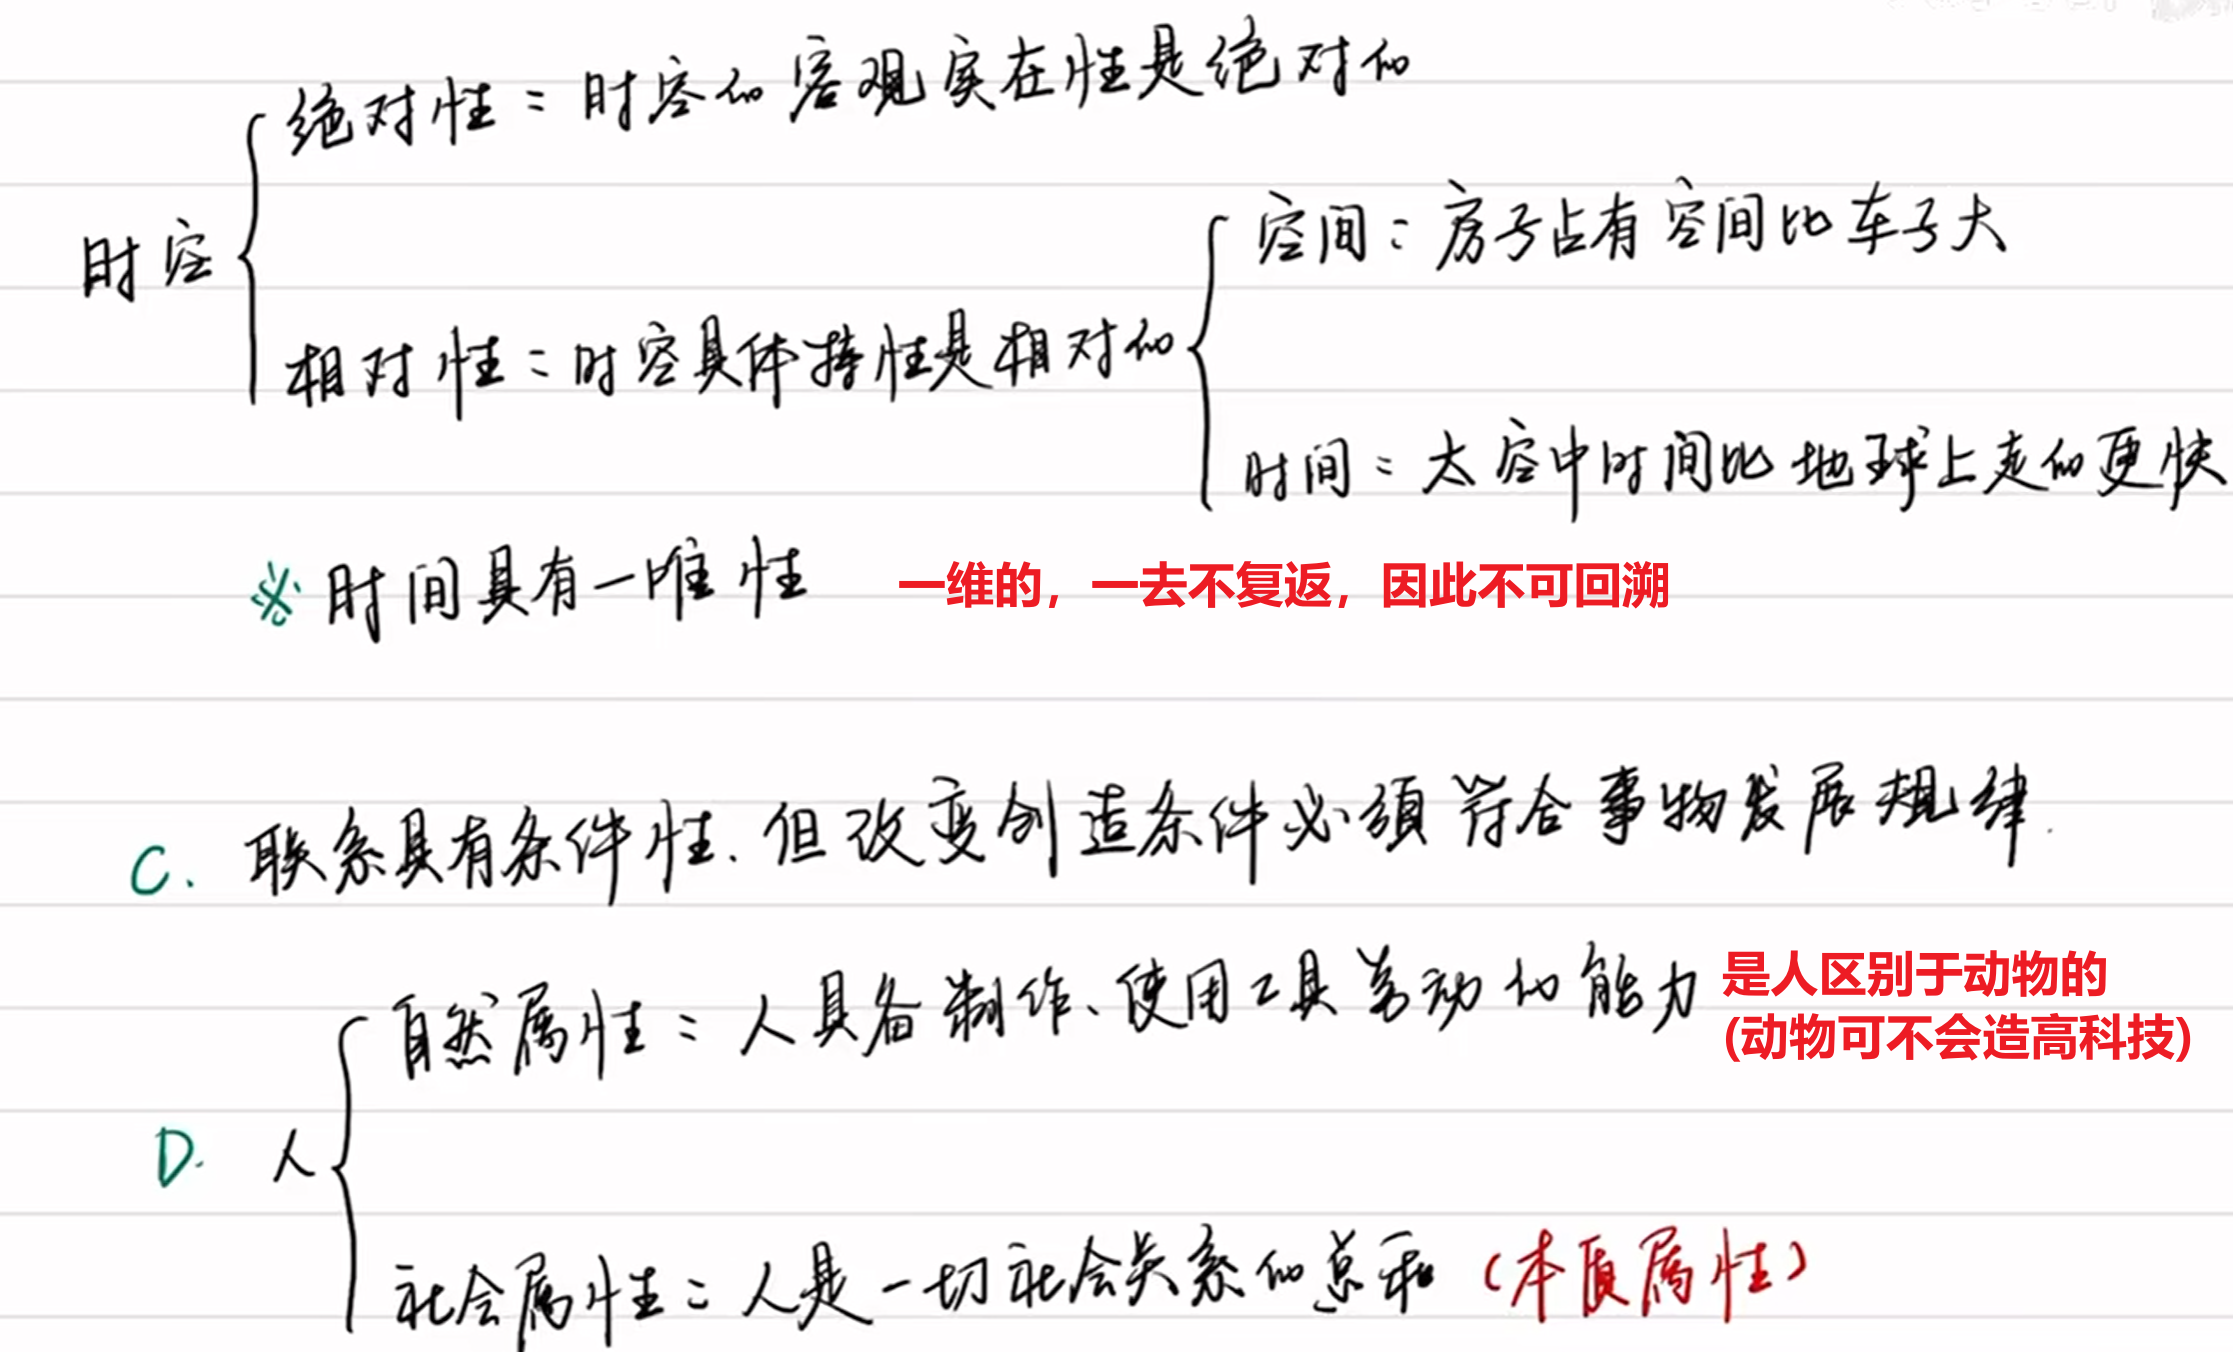 绝对性：时空的客观实在性是绝对的
时空
空间：房子占有空间比车子大
相对性：时空具体特性是相对的
时间：太空中时间比地球上走的更快
※时间具有一唯性 一维的，一去不复返，因此不可回溯
C. 联系具有条件性.但改变创造条件必须符合事物发展规律.
自然属性：人具备制作、使用工具劳动的能力 是人区别于动物的
(动物可不会造高科技)
D. 人
社会属性：人是一切社会关系的总和（本质属性）